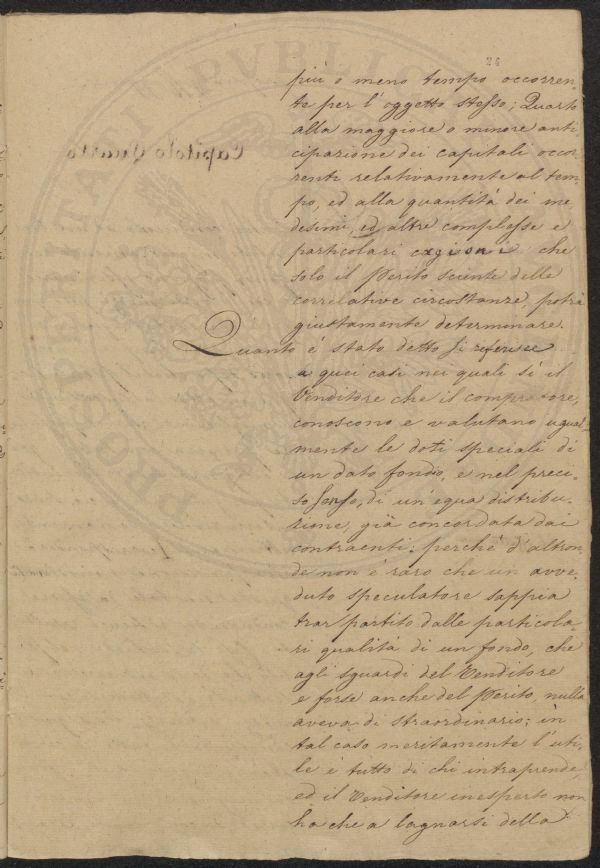 24
più o meno tempo occorren-
te per l'oggetto stesso; Quarto
alla maggiore o minore anti
cipazione dei capitali occor-
renti relativamente al tem-
po, ed alla quantità dei me
desimi, ed altre complesse e
particolari cagioni che
solo il Perito sciente delle
correlative circostanze, potrà
giustamente determinare.
Quanto è stato detto si riferisce
a quei casi nei quali sì il
Venditore che il compratore,
conoscono e valutano ugual-
mente le doti speciali di
un dato fondo, e nel preci-
so senso, di un'equa distribu-
zione, già concordata dai
contraenti: perchè d'altron-
de non è raro che un avve-
duto speculatore sappia
trar partito dalle particola-
ri qualità di un fondo, che
agli sguardi del Venditore
e forse anche del Perito, nulla
aveva di straordinario; in
tal caso meritamente l'uti-
le è tutto di chi intraprende,
ed il Venditore inesperto non
ha che a lagnarsi della
Capitolo Quarto